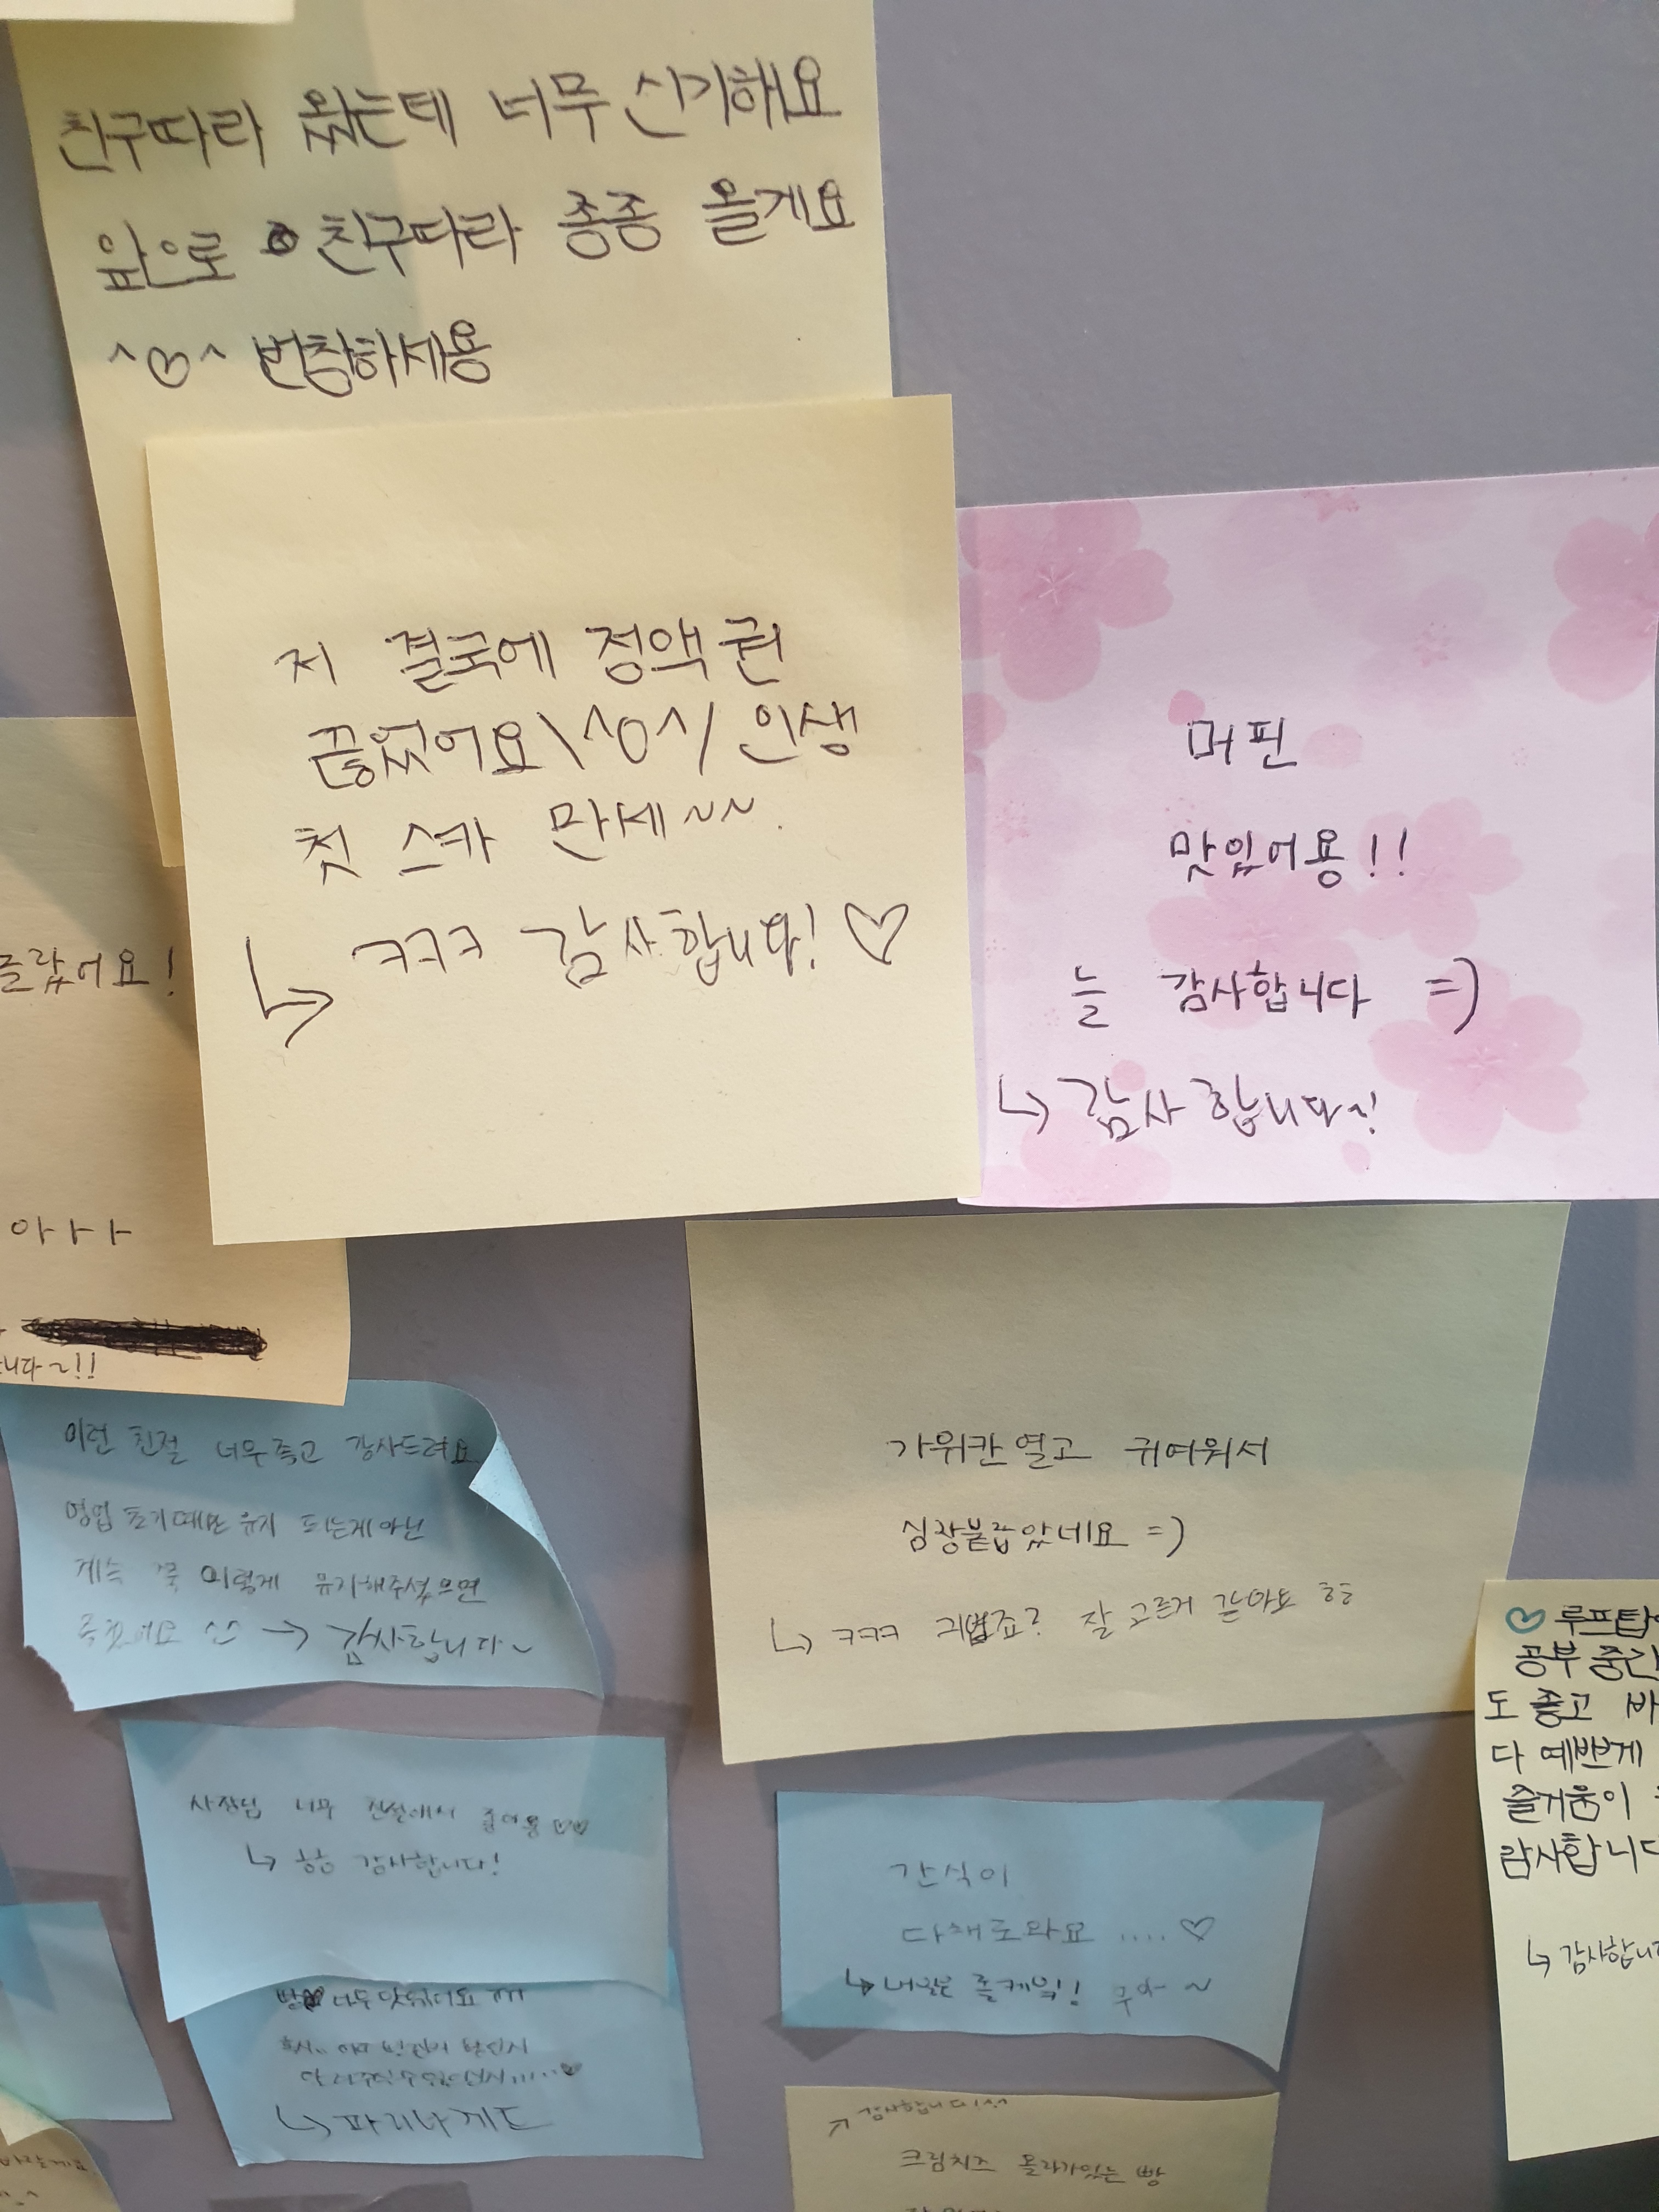 친구따라 왔는데 너무 신기해요
앞으로 친구따라 종종 올게요
^♡^ 번창하세용
저 결국에 정액권
끊었어요\^0^/ 인생
첫 스카 만세~~.
↳ ㅋㅋㅋ 감사합니다! ♡
머핀
맛있어용!!
늘 감사합니다 =)
↳ 감사합니다~!
골랐어요!
아ㅏㅏ
니다~!!
이런 친절 너무 좋고 감사드려요
영업 초기때만 유지 되는게아닌
계속 쭉 이렇게 유지해주셨으면
좋겠어요 ^^ → 감사합니다~
가위칸 열고 귀여워서
심장붙잡았네요 =)
↳ ㅋㅋㅋ 귀엽죠? 잘 고른거 같아요 ㅎㅎ
사장님 너무 친절해서 좋아용 ♡♡
↳ 감사합니다!
간식이
다채로와요 ..... ♡
↳
♡ 루프탑
공부 중간
도 좋고 바
다 예쁘게
즐거움이
감사합니다
↳ 감사합니다
너무
↳ 파리바게트
↗ 감사합니다
크림치즈 올라가있는 빵